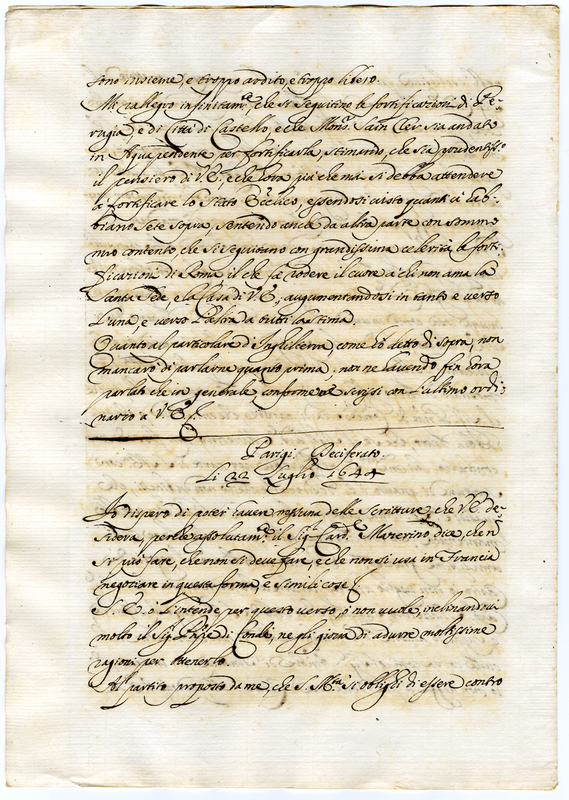 sono insieme, e troppo ardito, e troppo libero.
Mi rallegro infinitam.te, che si seguitino le fortificazioni di Pe-
rugia, e di Città di Castello, e che Mons.r Saint Cler sia andato
in Aquapendente per fortificarla, stimando, che sia prudentiss.o
il pensiero di V.E., e che hora più che mai si debba attendere
à fortificare lo Stato Eccl.ico, essendosi visto quanti ci hab-
biano sete sopra, sentendo anche da altra parte con sommo
mio contento, che si seguitano con grandissima celerità le forti-
ficazioni di Roma il che fa rodere il cuore a chi non ama la
Santa Sede, e la Casa di V.E., augumentandosi in tanto e verso
l'una, e verso l'altra da tutti la stima.
Quanto al particolare d'Inghilterra, come hò detto di sopra, non
mancarò di parlarne quanto prima, non ne havendo fin hora
parlato che in generale conforme scrissi con l'ultimo ordi-
nario à V.E.
Parigi Deciferato.
Li 22 Luglio 1644
Io dispero di poter haver nessuna delle Scritture, che V.E. de-
sidera, perche assolutam.te il Sig.r Card. Mazerino dice, che ñ
si può fare, che non si deve fare, e che non si usa in Francia
negotiare in questa forma, e simili cose
S.E. ò l'intende per questo verso, ò non vuole, inclinandovi
molto il Sig. Pñpe di Condè, ne gli giova di addurre moltissime
ragioni per ottenerlo.
Al partito proposto da me, che S. M.tà si oblighi di essere contro